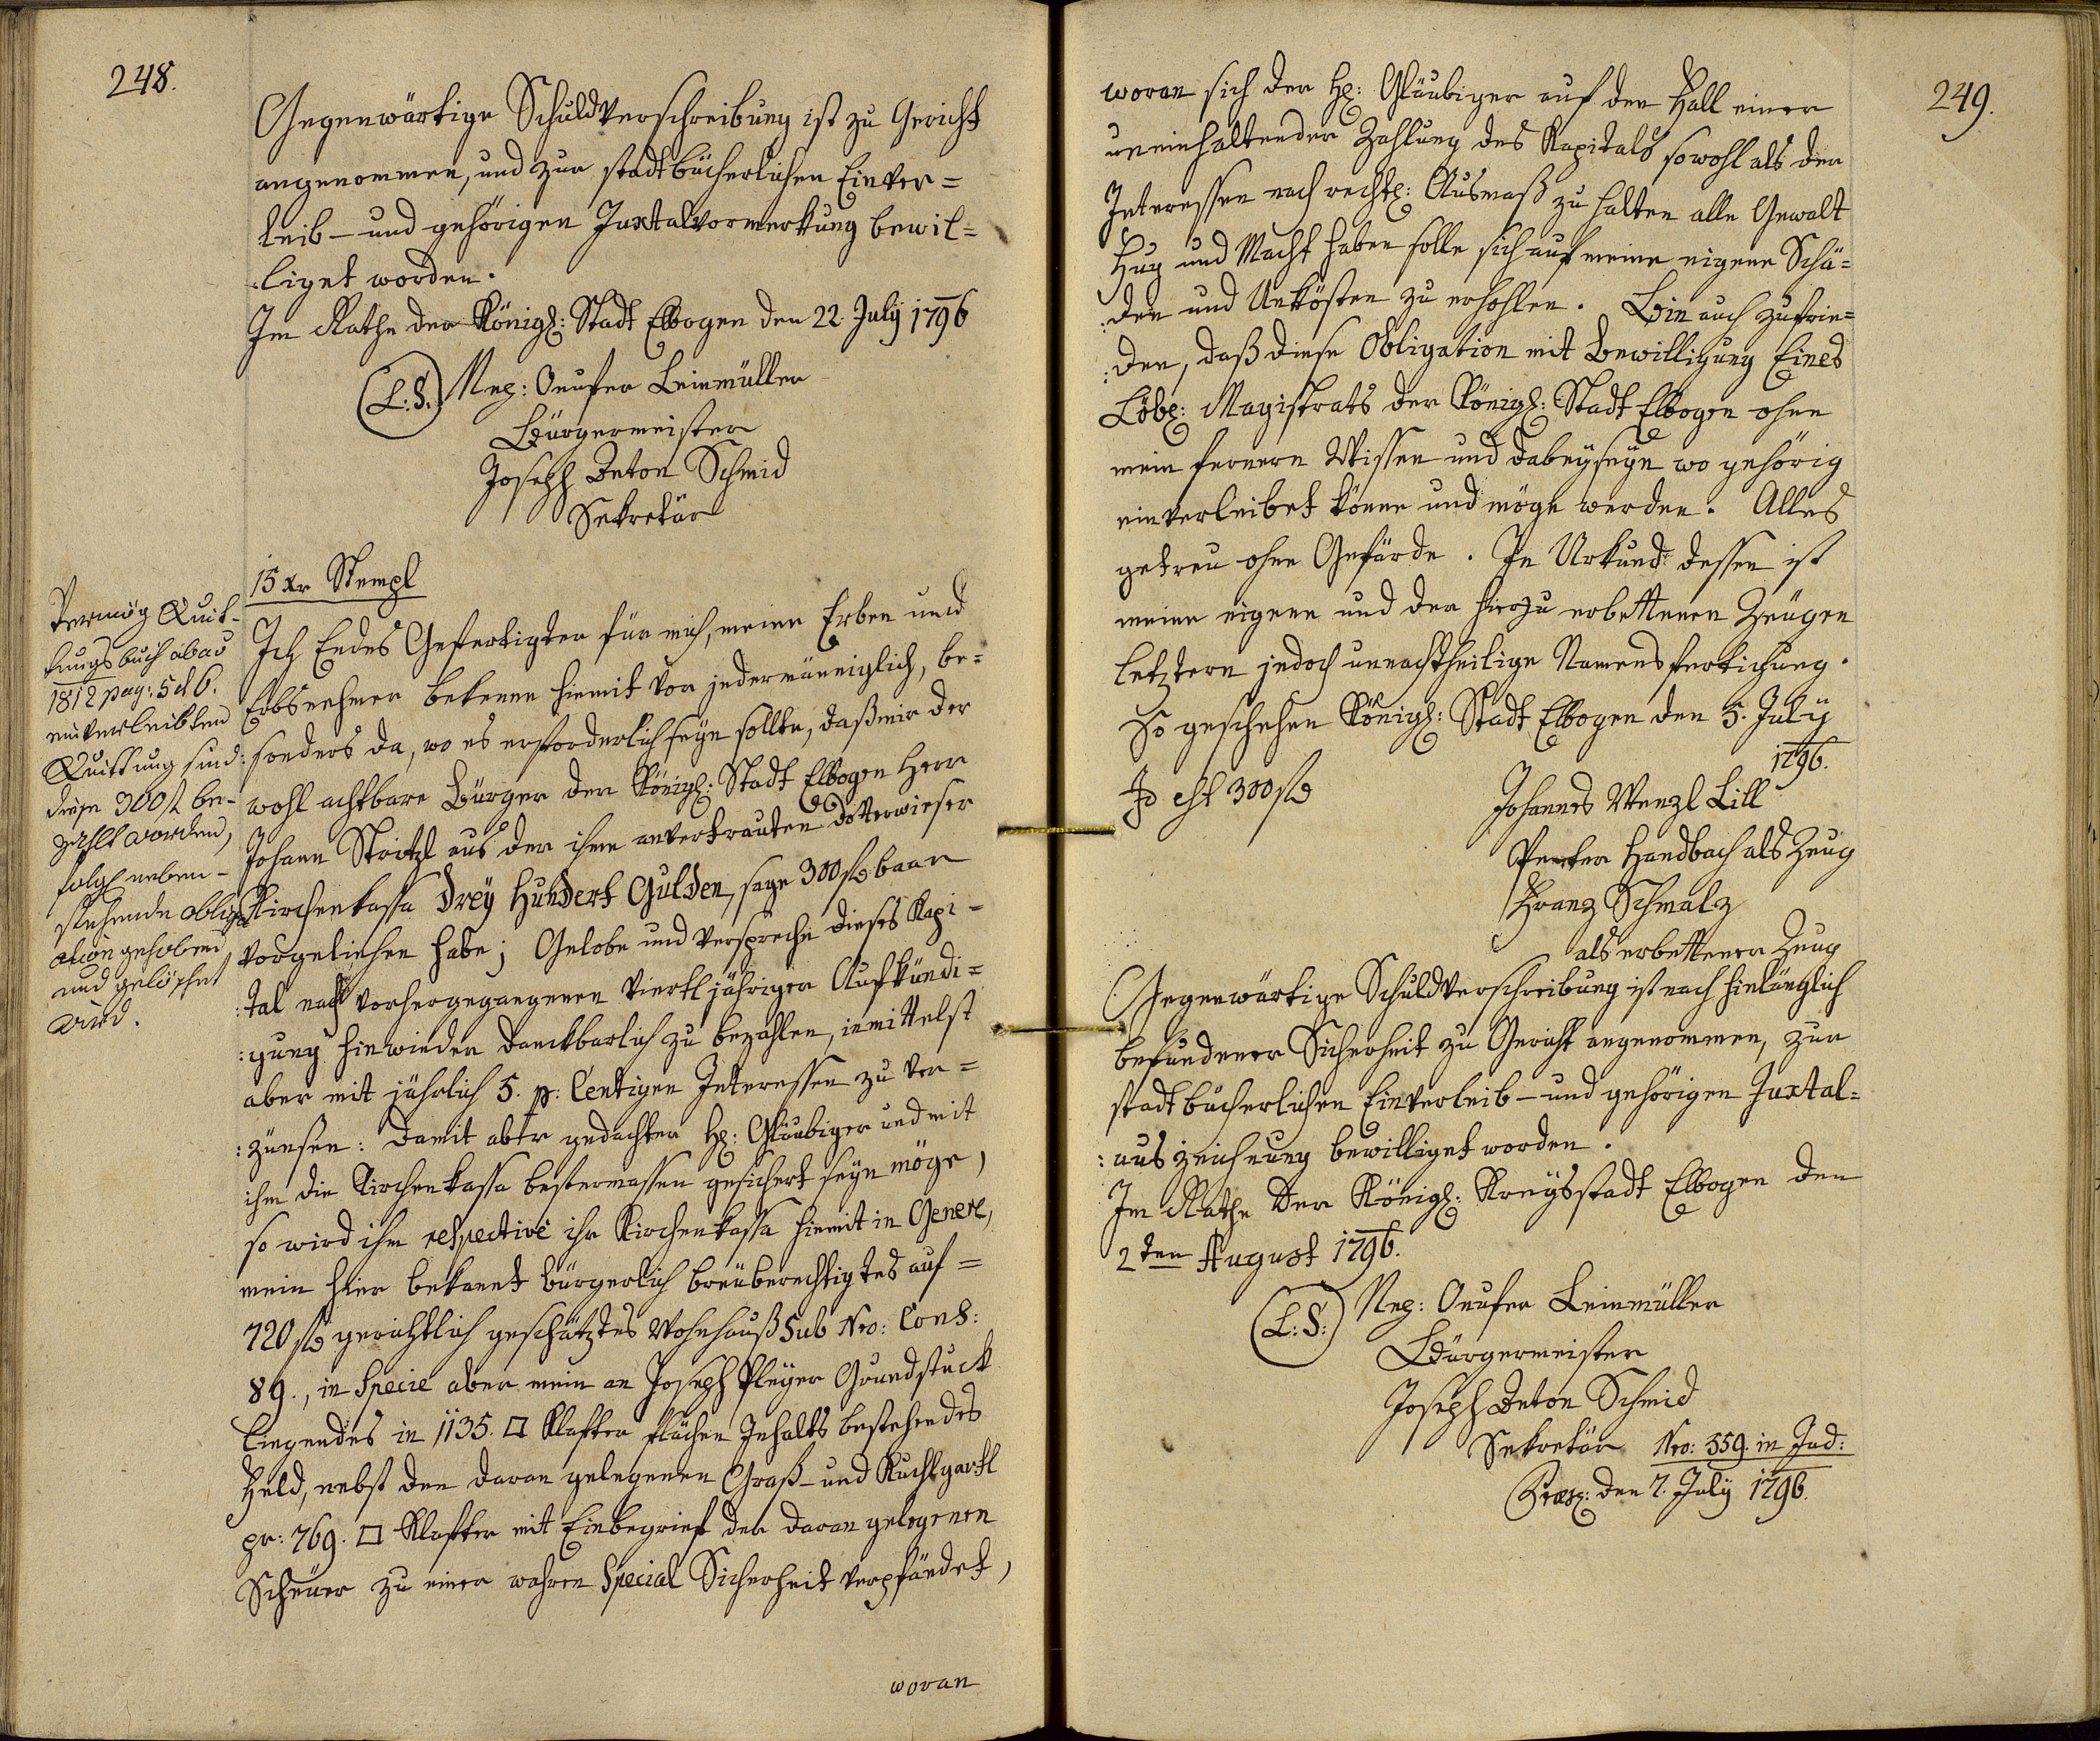 248.
Gegenwärtige Schuldverschreibung ist zu Gericht
angenommen, und zur stadtbücherlichen Einver=
leib- und gehörigen Juxtalvormerkung bewil=
liget worden.
Im Rathe der Königl: Stadt Elbogen den 22. July 1796
(L:S.) Neg: Onufer Leinmüller
Bürgermeister
Joseph Anton Schmid
Sekretär
15 xr Stempl
Vermög Quit-
tungsbuch ab aõ
1812 pag: 5 et 6.
einverleibten
Quittung sind
diese 300 f be-
zahlt worden,
folgl neben-
stehende oblig
ation gehoben
und gelöschet
wird.
Ich Endes Gefertigter für mich, meine Erben und
Erbsnehmer bekenne hiemit vor jedermänniglich, be=
:sonders da, wo es erforderlich seyn sollte, daß mir der
wohl achtbare Bürger der Königl: Stadt Elbogen Herr
Johann Stoitzl aus der ihme anvertrauten Dotterwieser
Kirchenkassa drey Hundert Gulden, sage 300 f baar
vorgeliehen habe; Gelobe und verspreche dieses Kapi=
:tal nach vorhergegangener viertljähriger Aufkündi=
:gung hinwieder danckbarlich zu bezahlen, inmittelst
aber mit jährlich 5. p: Centigen Interessen zu ver=
:zünsen: Damit aber gedachter H: Gläubiger und mit
ihm die Kirchenkassa bestermassen gesichert seyn möge,
so wird ihm respective ihr Kirchenkassa hiemit in Genere,
mein hier bekannt bürgerlich breuberechtigtes auf=
720 f gerichtlich geschätztes Wohnhauß Sub Nro: Cons:
89., in Specie aber mein an Joseph Pleyer Grundstuck
liegendes in 1135. □ Klafter flächen Inhalts bestehendes
Feld, nebst den daran gelegenen Graß- und Kuchlgartl
pr: 769. □ Klafter mit Einbegrief der daran gelegenen
Scheuer zu einer wahren Special Sicherheit verpfändet,
woran
249.
woran sich der H: Gläubiger auf den Fall einer
uneinhaltender Zahlung des Kapitals sowohl als der
Interessen nach rechtl: Ausmaß zu halten alle Gewalt
Fug und Macht haben solle sich auf meine eigene Schä=
:den und Unkösten zu erhohlen. Bin auch zufrie=
:den, daß diese Obligation mit Bewilligung Eines
Löbl: Magistrats der Königl: Stadt Elbogen ohne
mein fernern Wissen und dabeyseyn wo gehörig
einverleibet könne und möge werden. Alles
getreu ohne Gefärde. In Urkund dessen ist
meine eigene und der hierzu erbettenen Zeugen
letztern jedoch unnachtheilige Namensfertichung.
So geschehen Königl: Stadt Elbogen den 5. July
1796.
Id est 300 f
Johannes Wenzl Lill
Peter Handbach als Zeug
Franz Schmalz
als erbettener Zeug
Gegenwärtige Schuldverschreibung ist nach hinlänglich
befundener Sicherheit zu Gericht angenommen, zur
stadtbücherlichen Einverleib- und gehörigen Juxtal=
:auszeichnung bewilliget worden.
Im Rathe der Königl: Kreysstadt Elbogen den
2ten August 1796.
(L:S:) Neg: Onufer Leinmüller
Bürgermeister
Joseph Anton Schmid
Sekretär Nro: 359. in Jud:
Præs: den 7. July 1796.